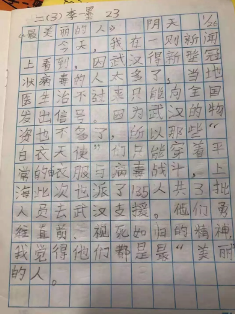 二(3)李墨 23
《最美丽的人》 阴天 1/26
今天,我在一则新闻
上看到,因为武汉得新型冠
状病毒的人太多了,当地
医生治不过来只能向全国
发出信号,因为武汉的物
资也不多了,所以那些“
白衣天使”们只能穿着平
常的衣服与病毒战斗,上
海此次也派了135人共3批
人员去武汉支援。他们勇
往直前、视死如归的精神
我觉得他们都是最“美丽”
的人。